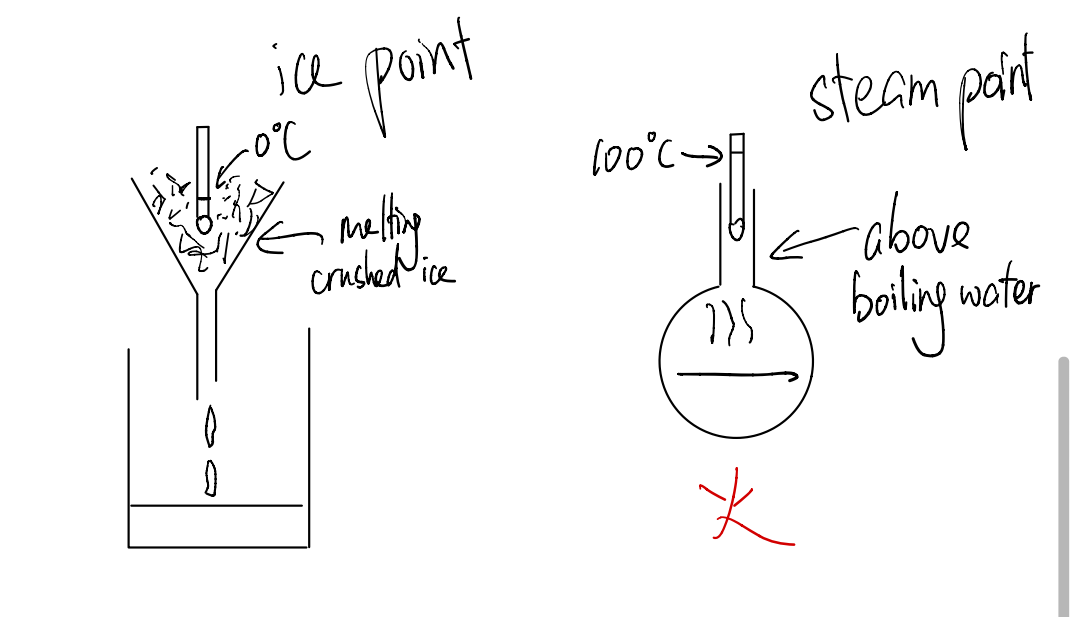 ice point
0°C
melting
crushed ice
steam point
100°C
above
boiling water
火